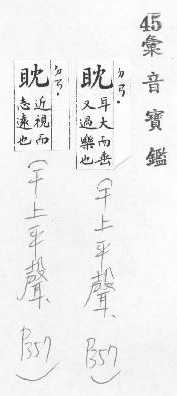 45 彙音寶鑑
ㄉㄢ·
耽
耳大而垂
又過樂也
(干上平聲 P357)
ㄉㄢ·
眈
近視而
志遠也
(干上平聲 P357)